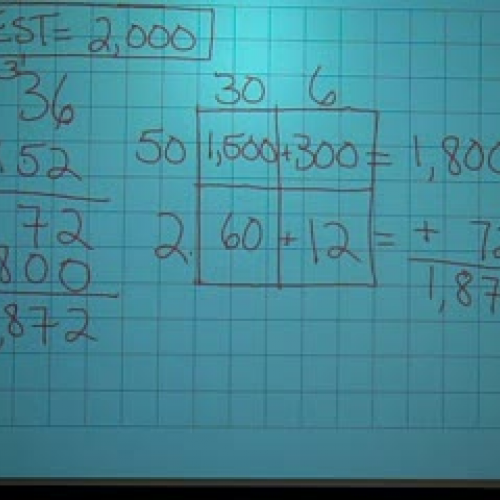 EST= 2,000
3
36
52
72
800
,872
30 6
50 1,500 + 300 = 1,800
2. 60 + 12 = + 72
1,87